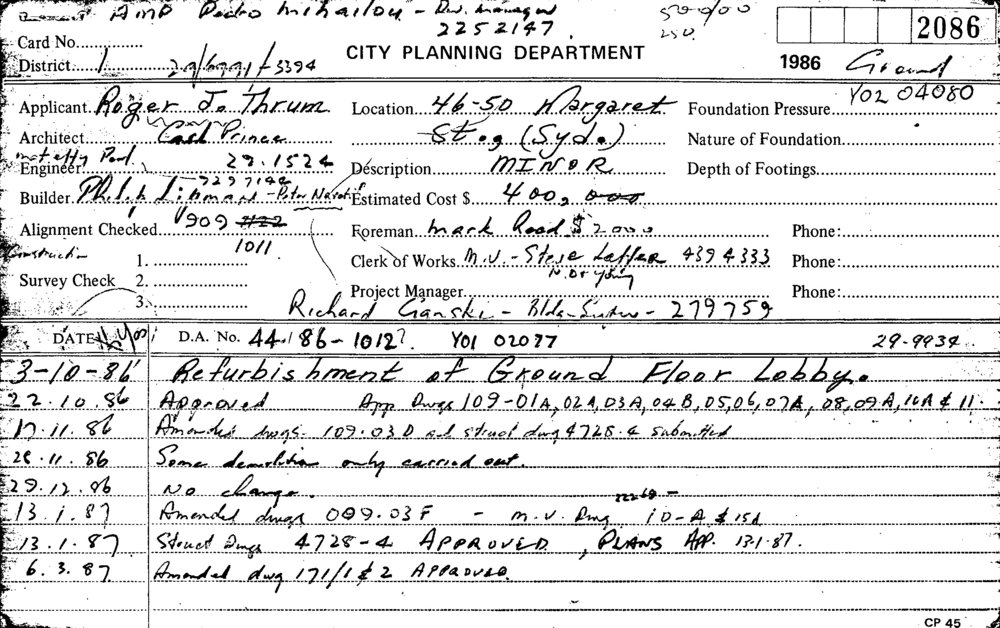 AMP Pedro Mihailou - Div. Manager 50000
2252147 250
Card No. CITY PLANNING DEPARTMENT 2086
District 1 29/6991/-5394 1986 Ground
Applicant Roger J. Thrum Location 46-50 Margaret Foundation Pressure Y02 04080
Architect Prince St. (Syd.) Nature of Foundation
Engineer 29.1524 Description MINOR Depth of Footings
Builder 7297142 - Peter Estimated Cost $ 400, 000
Alignment Checked 909 Foreman Mark Road $2000 Phone:
Construction 1. 1011 Clerk of Works M.V. - Steve Laffer 4394333 Phone:
Survey Check 2. N. Or Young
3. Project Manager Phone:
Richard Ganski - Bldg - 279759
DATE D.A. No. 44/86-1012? Y01 02077 29-9934
3-10-86 Refurbishment of Ground Floor Lobby.
22.10.86 Approved App Dwgs 109-01A, 02A, 03A, 04B, 05, 06, 07A, 08, 09A, 10A & 11.
17.11.86 Amended dwgs. 109.03D and struct dwg 4728.4 submitted
28.11.86 Some demolition only carried out.
29.12.86 No change.
22268 -
13.1.87 Amended dwgs 009.03F - M.V. Dwg 10-A & 15A
13.1.87 Struct Dwgs 4728-4 APPROVED, PLANS APP. 13.1.87.
6.3.87 Amended dwg 171/1 & 2 APPROVED.
CP 45